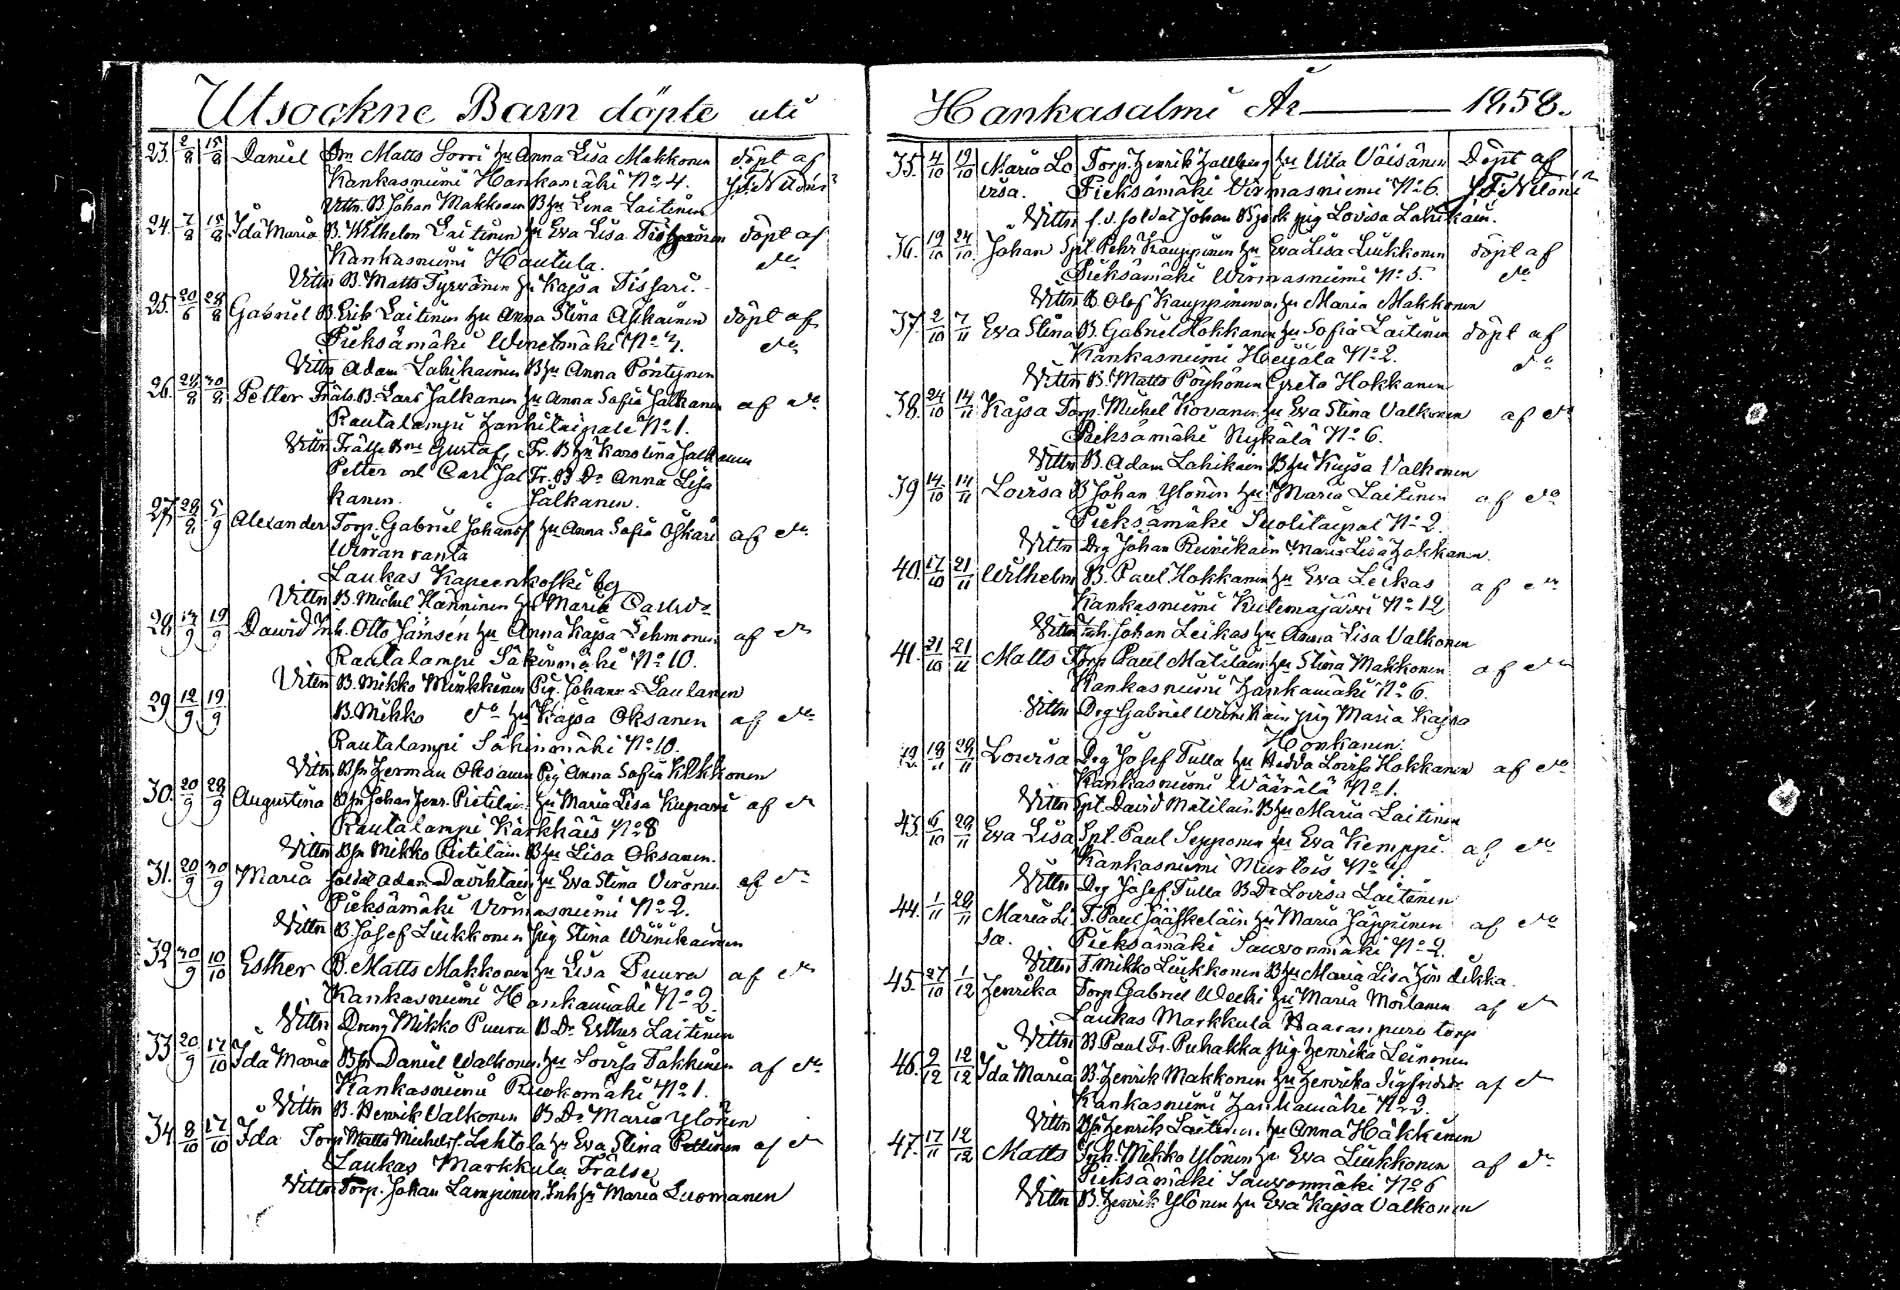 Utsockne Barn döpte uti
23. 2/8 15/8 Daniel Bn Matts Sorri hu Anna Lisa Makkonen döpt af
Kankasniemi Hankamäki No 4.
Vittn. B Johan Makkonen B hu Lena Laitinen
24. 7/8 15/8 Ida Maria B. Wilhelm Laitinen hu Eva Lisa döpt af
Kankasniemi Hautula. do
Vittn B. Matts Tyrvänen hu Kajsa Tissari.
25. 20/6 28/8 Gabriel B. Erik Laitinen hu Anna Stina Asikainen döpt af
Pieksämäki No 7. do
Vittn Adam Lahikainen B hu Anna Pöntynen
26. 28/8 30/8 Petter Fräls. B. Lars Jalkanen hu Anna Sofia Jalkanen af do
Rautalampi Hankitaipale No 1.
Vittn Frälse Bne Gustaf, Fr. B hu Karolina Jalkanen
Petter och Carl Jal Fr. B Dr Anna Lisa
kanen. Jalkanen.
27. 29/8 5/9 Alexander Torp. Gabriel Johansf hu Anna Sofia Oskari af do
Wirran ranta
Laukas Kapeenkoski bg
Vittn B. Michel Hänninen hu Maria
28 17/9 19/9 David Inh. Otto Jämsén hu Anna Kajsa Lehmonen af do
Rautalampi Säkinmäki No 10.
Vittn B. Mikko Minkkinen Pig. Johanna Lautanen
29 12/9 19/9 B. Mikko do hu Kajsa Oksanen af do
Rautalampi Säkinmäki No 10.
Vittn B sn Herman Oksanen Pig Anna Sofia Kekkonen
30. 20/9 28/9 Augustina B sn Johan Henr. Pietiläi. hu Maria Lisa Kupari af do
Rautalampi Kärkkäis No 8
Vittn B sn Mikko Pietiläin B hu Lisa Oksanen.
31. 20/9 30/9 Maria soldat Adam hu Eva Stina af do
Pieksämäki Virmasniemi No 2.
Vittn B Josef Liukkonen pig Stina Wiinikainen
32 30/9 10/10 Esther B. Matts Makkonen hu Lisa Puura af do
Kankasniemi Hankamäki No 2.
Vittn Dreng Mikko Puura B Dr Esther Laitinen
33 20/9 17/10 Ida Maria B sn Daniel Walkonen hu Lovisa Takkinen af do
Kankasniemi No 1.
Vittn B. Henrik Valkonen B Dr Maria Ylönen
34 8/10 17/10 Ida Torp Matts Michelsf. Lehtola hu Eva Stina Pettinen af do
Laukas Markkula Frälse
Vittn Torp. Johan Lampinen, Inh hu Maria Luomanen
Hankasalmi År 1858.
35. 4/10 19/10 Maria Lo Torp. Henrik Hallberg hu Ulla Väisänen Döpt af
visa. Pieksämäki Virmasniemi No 6.
Vittn f.d. soldat Johan Björk pig Lovisa Lahikain.
36. 19/10 24/10 Johan Spt Pehr Kauppinen hu Eva Lisa Liukkonen döpt af
Pieksämäki Wirmasniemi No 5. do
Vittn B. Olof Kauppinen hu Maria Makkonen
37. 2/10 7/11 Eva Stina B. Gabriel Hokkanen hu Sofia Laitinen döpt af
Kankasniemi Heijälä No 2. do
Vittn B. Matts Pöyhönen Greta Hokkanen
38. 24/10 14/11 Kajsa Torp. Michel Kovanen hu Eva Stina Valkonen af do
Pieksämäki Nykälä No 6.
Vittn B. Adam Lahikain B hu Kajsa Valkonen
39 14/10 14/11 Lovisa B Johan Ylönen hu Maria Laitinen af do
Pieksämäki Suolitaipal No 2.
Vittn Drg Johan Reinikain Maria Lisa Hokkanen.
40. 17/10 21/11 Wilhelm B. Paul Hokkanen hu Eva Leikas af do
Kankasniemi Kutemajärvi No 12
Vittn Inh. Johan Leikas hu Anna Lisa Valkonen
41. 21/10 21/11 Matts Torp Paul Matilain hu Stina Makkonen af do
Kankasniemi Hankamäki No 6.
Vittn Drg Gabriel pig Maria Kajsa
Honkanen.
42. 18/11 29/11 Lovisa Drg Josef Tulla hu Hedda Lovisa Hokkanen af do
Kankasniemi Wäärälä No 1.
Vittn Spt. David Matilain B hu Maria Laitinen
43. 6/10 29/11 Eva Lisa Spt. Paul Sepponen hu Eva Kemppi. af do
Kankasniemi Murtois No 4.
Vittn Drg Josef Tulla B Dr Lovisa Laitinen
44. 1/11 29/11 Maria Li T. Paul Jääskeläin hu Maria Jäppinen af do
sa. Pieksämäki Sauvonmäki No 2.
Vittn T. Mikko Liukkonen B hu Maria Lisa
45. 27/10 1/12 Henrika Torp Gabriel hu Maria Moilanen af do
Laukas Markkula Haaranpuro torp
Vittn B Paul Fr. Puhakka pig Henrika Leinonen
46. 9/12 12/12 Ida Maria B. Henrik Makkonen hu Henrika Sigfridsdr af do
Kankasniemi Hankamäki No 2.
Vittn B sn Henrik Laitinen hu Anna Häkkinen
47. 17/11 12/12 Matts Inh. Mikko Ylönen hu Eva Liukkonen af do
Pieksämäki Sauvonmäki No 6
Vittn B. Henrik Ylönen hu Eva Kajsa Valkonen